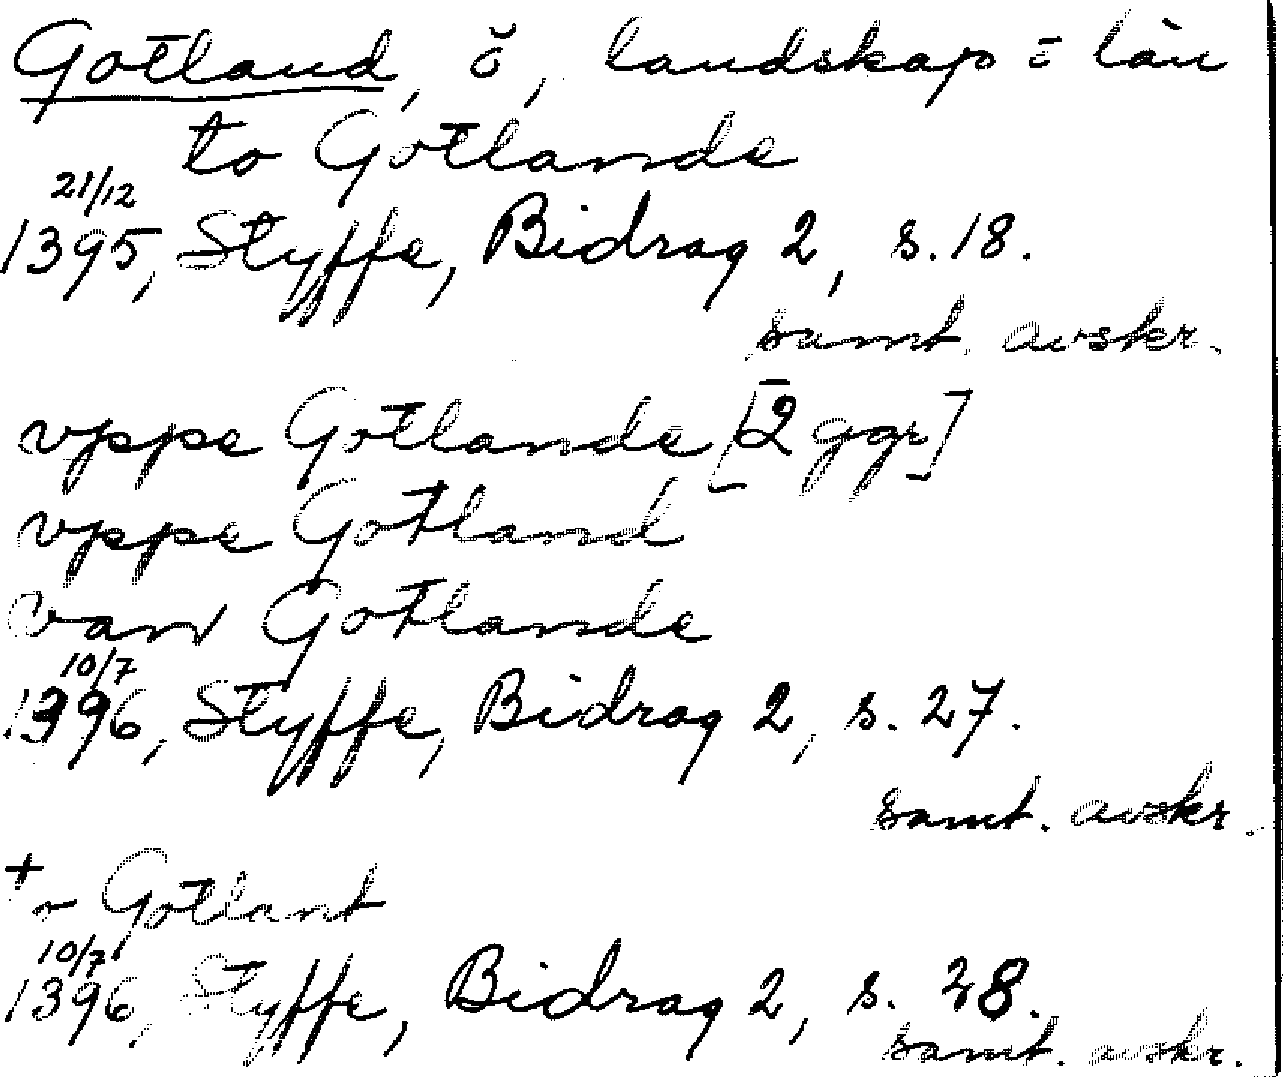 Gotland, ö, landskap = län
to Gotlande
21/12
1395, Styffe, Bidrag 2, s. 18.
samt. avskr.
vppe Gotlande [2 ggr]
vppe Gotland
van Gotlande
10/7
1396, Styffe, Bidrag 2, s. 27.
samt. avskr.
+ ~ Gotlant
10/7
1396, Styffe, Bidrag 2, s. 28.
samt. avskr.